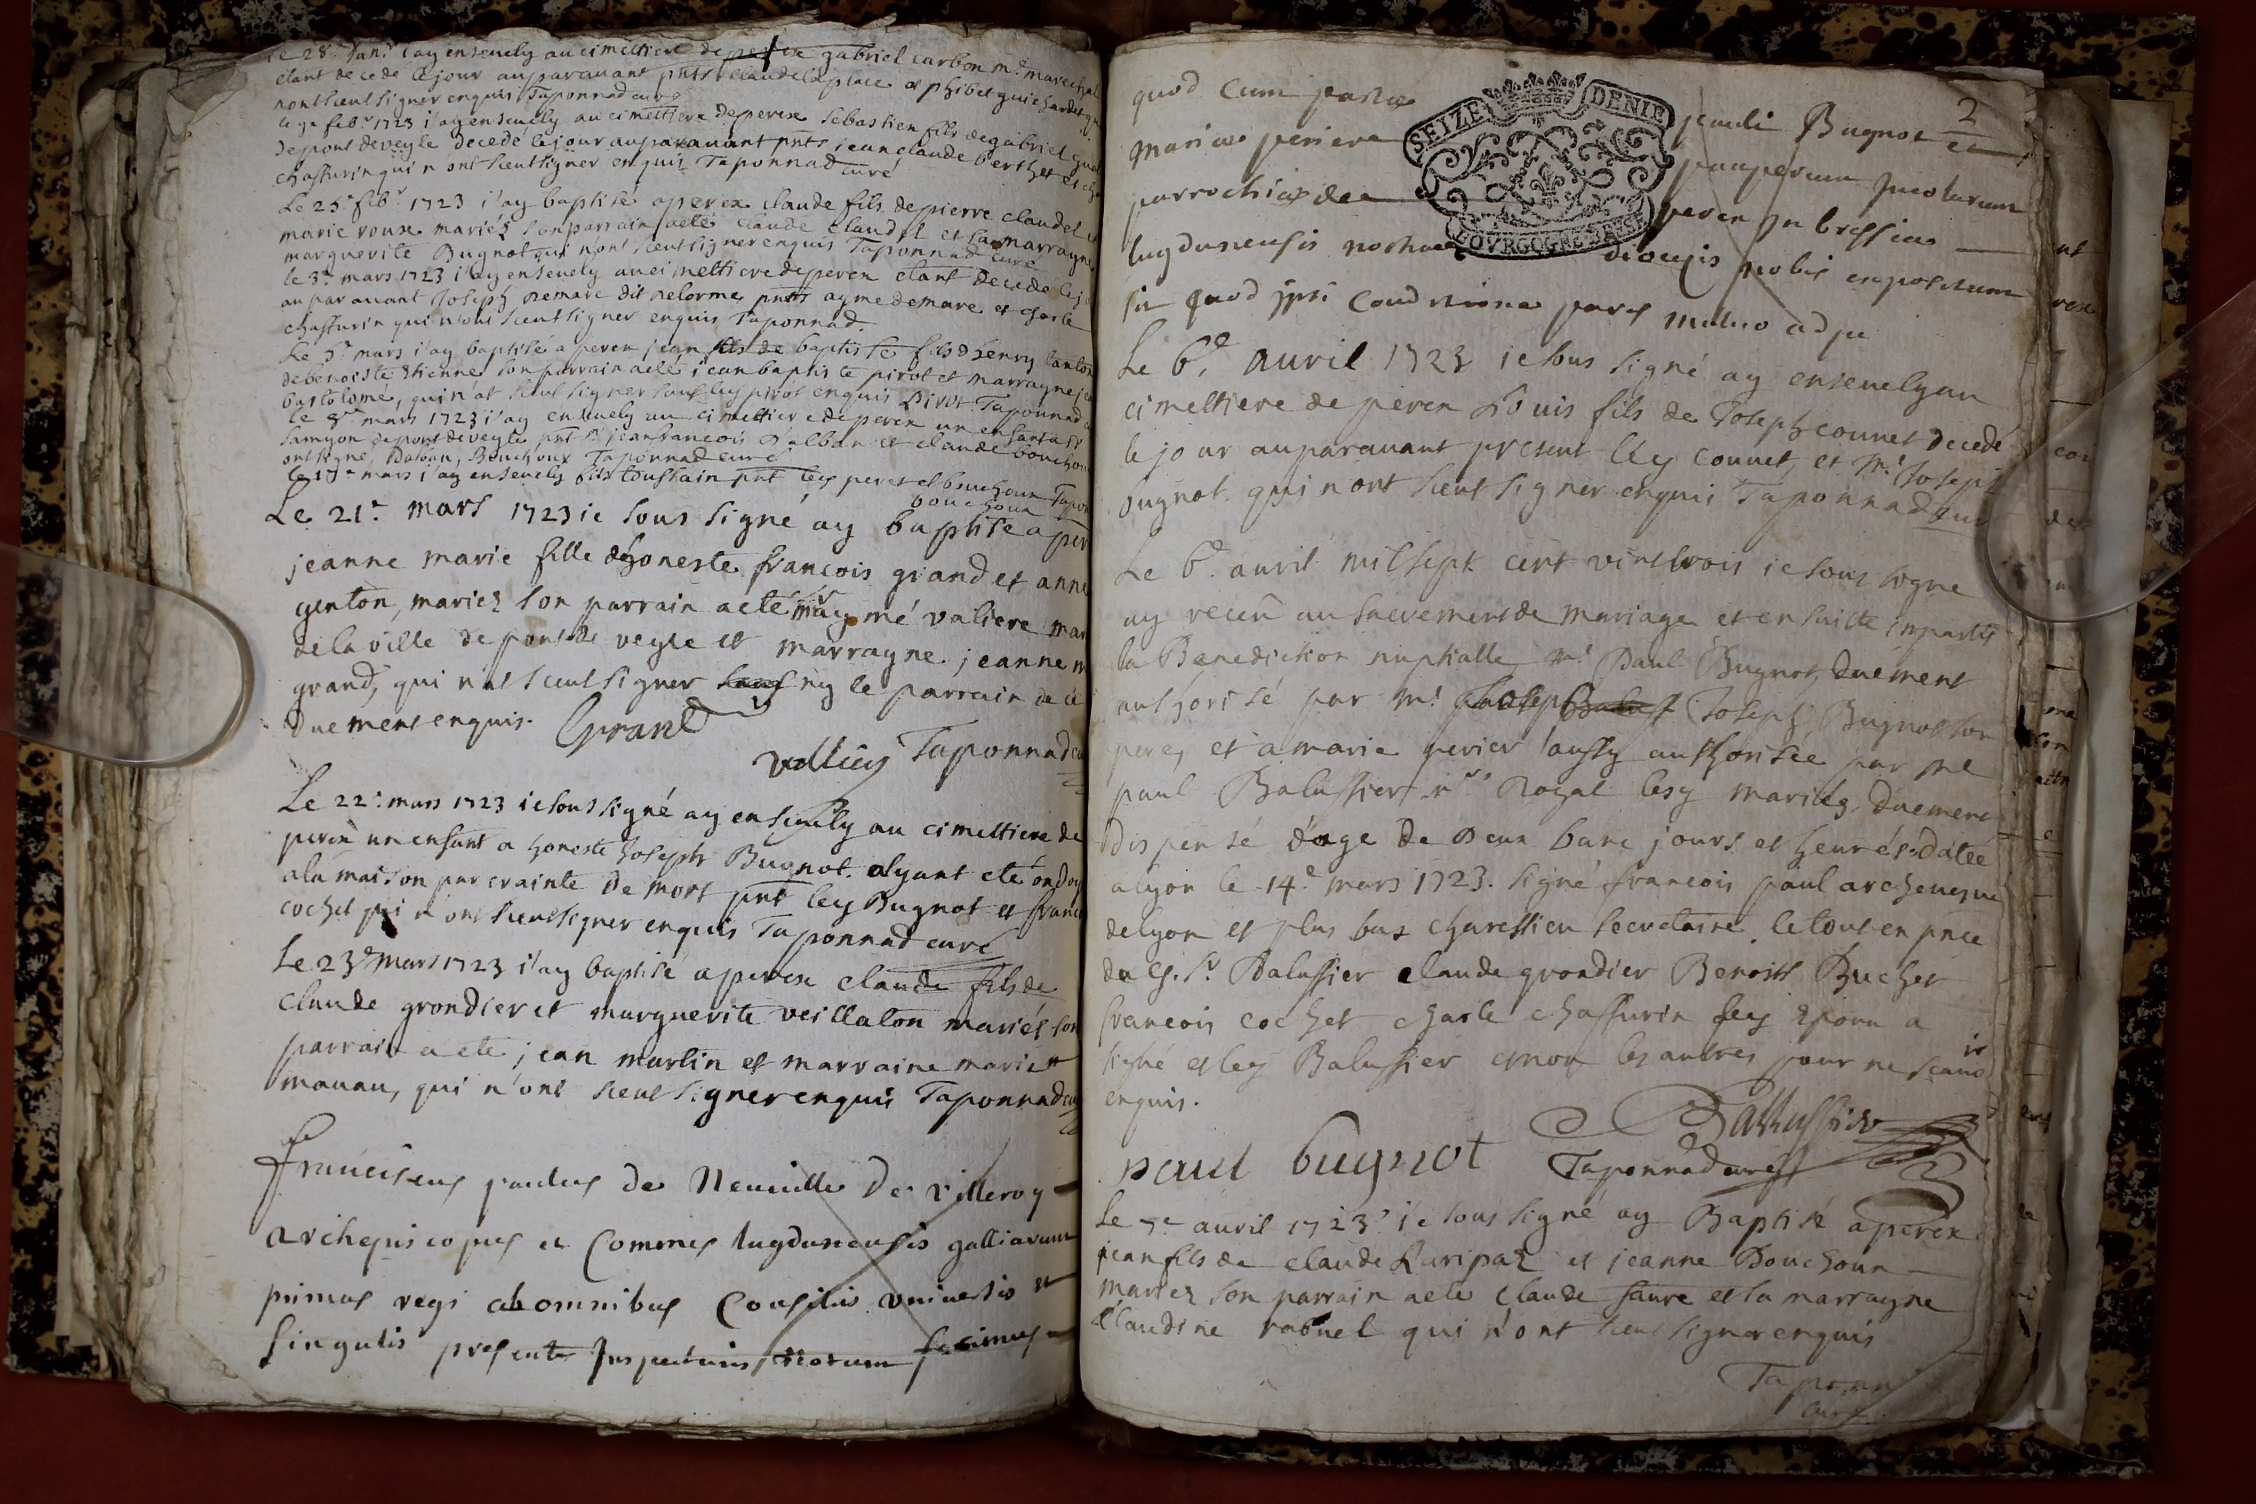 Le 28e Janr i'ay enseuely au cimettiere de perex gabriel carbon md marechal
etant decedé le jour auparauant pnts claude laplace et phibet guichardet
n'ont sceut signer enquis Taponnad curé
le 9e febr 1723 i'ay enseuely au cimettiere de perex sebastien fils de gabriel
de pont de veyle decedé le jour auparauant pnts jean claude berthet et
chaffurin qui n'ont sceut signer enquis Taponnad curé
Le 25e febr 1723 i'ay baptisé a perex claude fils de pierre claudel et
marie roux mariéz son parrain a eté claude claudel et sa marrayne
marguerite Bugnot qui n'ont sceut signer enquis Taponnad curé
le 3e mars 1723 i'ay enseuely au cimettiere de perex etant decedé le jo
auparauant Joseph demare dit delorme pnts ayme demare et charle
chaffurin qui n'ont sceut signer enquis Taponnad.
Le 5e mars i'ay baptisé a perex jean fils de baptiste fils d'henry
de benoiste etienne son parrain a eté jean baptiste pirot et marrayne
bartolome, qui n'at sceut signer sauf ley pirot enquis Pirot Taponnad
le 8e mars 1723 i'ay enseuely au cimettiere de perex un enfant a sr
samyon de pont de veyle pnt sr jean francois Dalban et claude bouchoux
ont signé, Dalban, Bouchoux Taponnad curé
le 17e mars i'ay enseuely toussain pnt ley peret et bouchoux Tapon
bouchoux
Le 21e mars 1723 ie sous signé ay baptisé a per
jeanne marie fille d'honeste francois grand et anne
genton, mariez son parrain a eté mr aymé valiere mar
de la ville de pont de veyle et marrayne jeanne m
grand, qui n'at sceut signer sauf ny le parrain de ce
duement enquis. Grand
Taponnad cu
Le 22e mars 1723 ie sous signé ay enseuely au cimettiere de
perex un enfant a honeste Joseph Bugnot ayant eté ondoy
a la maison par crainte de mort pnt ley Bugnot et franc
cochet qui n'ont sceut signer enquis Taponnad curé
Le 23e mars 1723 i'ay baptisé a perex claude fils de
claude grondier et marguerite veillaton mariés son
parrain a eté jean martin et marraine marie
manau, qui n'ont sceut signer enquis Taponnad cu
franciscus paulus de Neuuille De Villeroy
archepiscopus et Commes lugdunensis galliarum
primas regi ab omnibus Consiliis vniuersis et
singulis presentes Inspecturis notum facimus
2
quod Cum partie pauli Bugnot et
mariae periere pauperum Incolarum
parrochiae de perex In bressia
lugdunensis nostrae diocesis nobis expositum
sit quod ipsi conditione pares mutuo ad se
SEIZE DENIE
BOVRGOGNE BRESSE
Le 6e. auril 1723 ie sous signé ay enseuely au
cimettiere de perex Louis fils de Joseph counet decedé
le jour auparauant present ley counet, et Mr Joseph
bugnot qui n'ont sceut signer enquis Taponnad cur
Le 6e. auril mil sept cent vint trois ie sous signe
ay receu au sacrement de mariage et en suitte imparty
la Benediction nuptialle Mr Paul Bugnot, duëment
authorisé par mr Joseph Bugnot son
pere, et a marie perier aussy authorisée par me
paul Balussier nre Royal lesq mariés, duement
dispensé d'age de deux banc jours et heures. Datée
a lyon le 14e mars 1723. signé francois paul archeuesque
de lyon et plus bas charestieu secretaire. le tout en pnce
du ley. sr Balussier claude grondier Benoist Buchet
francois cochet charle chaffurin ley Epoux a
signé et ley Balussier et non les autres pour ne scauoir
enquis.
paul bugnot Ballussier
Taponnad curé
Le 7e auril 1723 ie sous signé ay Baptisé a perex
jean fils de claude Luripaz et jeanne Bouchoux
mariez son parrain a eté claude faure et la marrayne
Claudine rabuel qui n'ont sceut signer enquis
Taponnad
curé